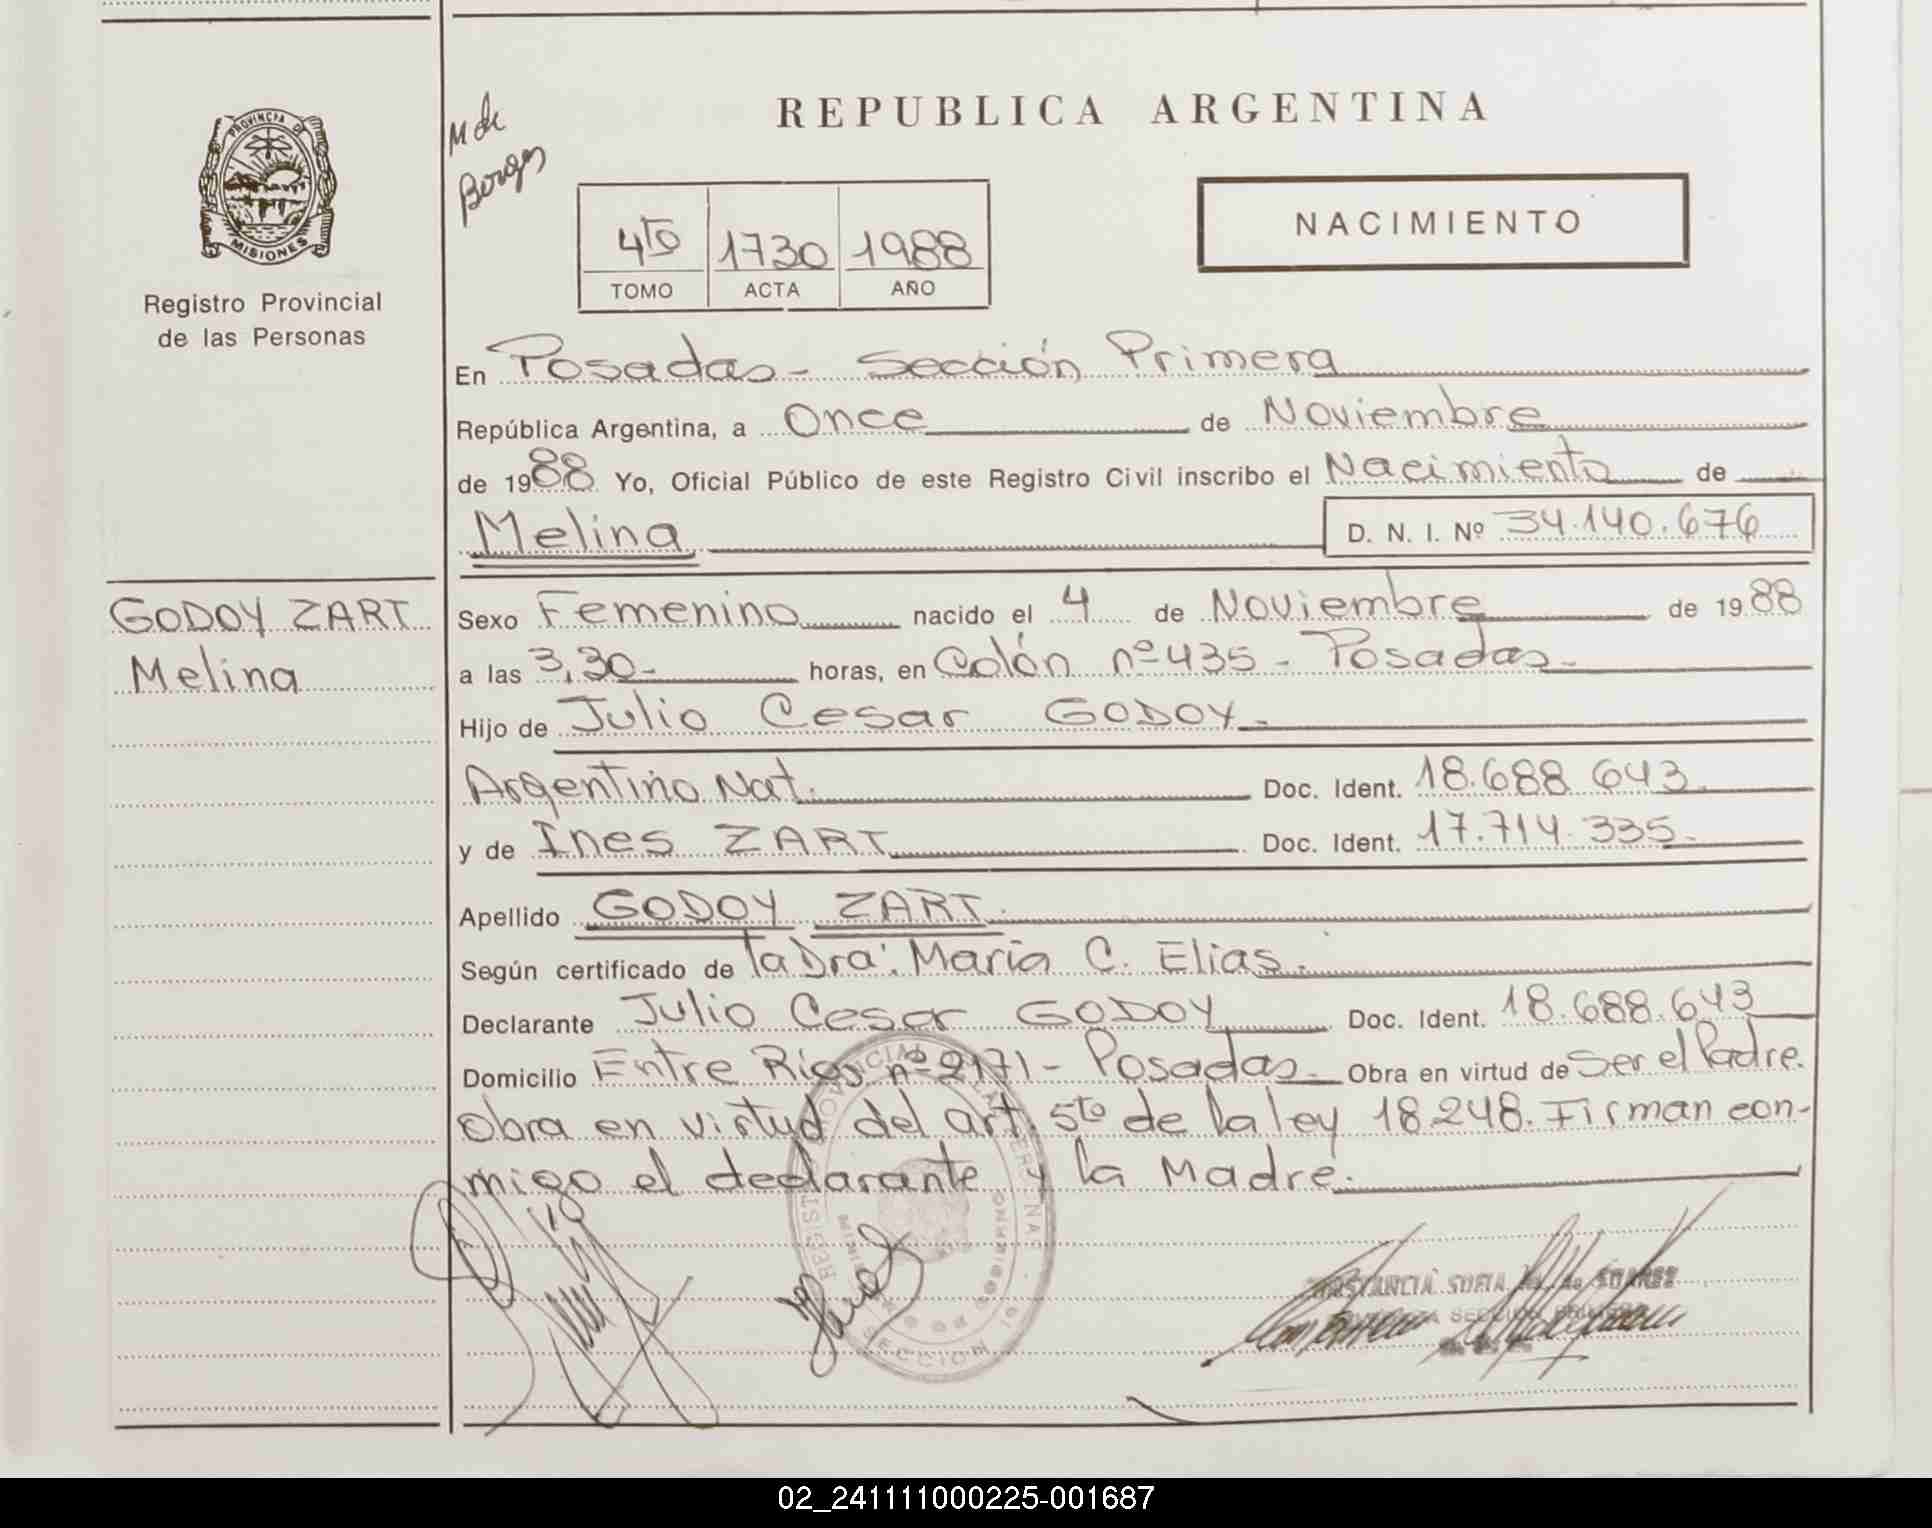 PROVINCIA DE
MISIONES
Registro Provincial
de las Personas
GODOY ZART
Melina
M de
Borges
REPUBLICA ARGENTINA
4to 1730 1988
TOMO ACTA AÑO
NACIMIENTO
En Posadas - Sección Primera
República Argentina, a Once de Noviembre
de 1988 Yo, Oficial Público de este Registro Civil inscribo el Nacimiento de
Melina D. N. I. Nº 34.140.676
Sexo Femenino nacido el 4 de Noviembre de 1988
a las 3,30- horas, en Colón nº 435 - Posadas-
Hijo de Julio Cesar GODOY-
Argentino Nat. Doc. Ident. 18.688.643
y de Ines ZART Doc. Ident. 17.714.335-
Apellido GODOY ZART.
Según certificado de la Dra. María C. Elias.
Declarante Julio Cesar GODOY Doc. Ident. 18.688.643
Domicilio Entre Rios nº 2171 - Posadas- Obra en virtud de Ser el Padre.
Obra en virtud del art. 5to de la ley 18.248. Firman con-
migo el declarante y la Madre.
SECCION
SOFIA
02_241111000225-001687